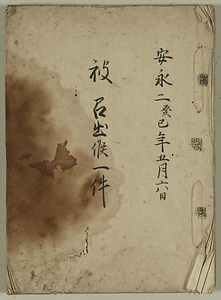 安永二癸巳年五月六日
被召出候一件